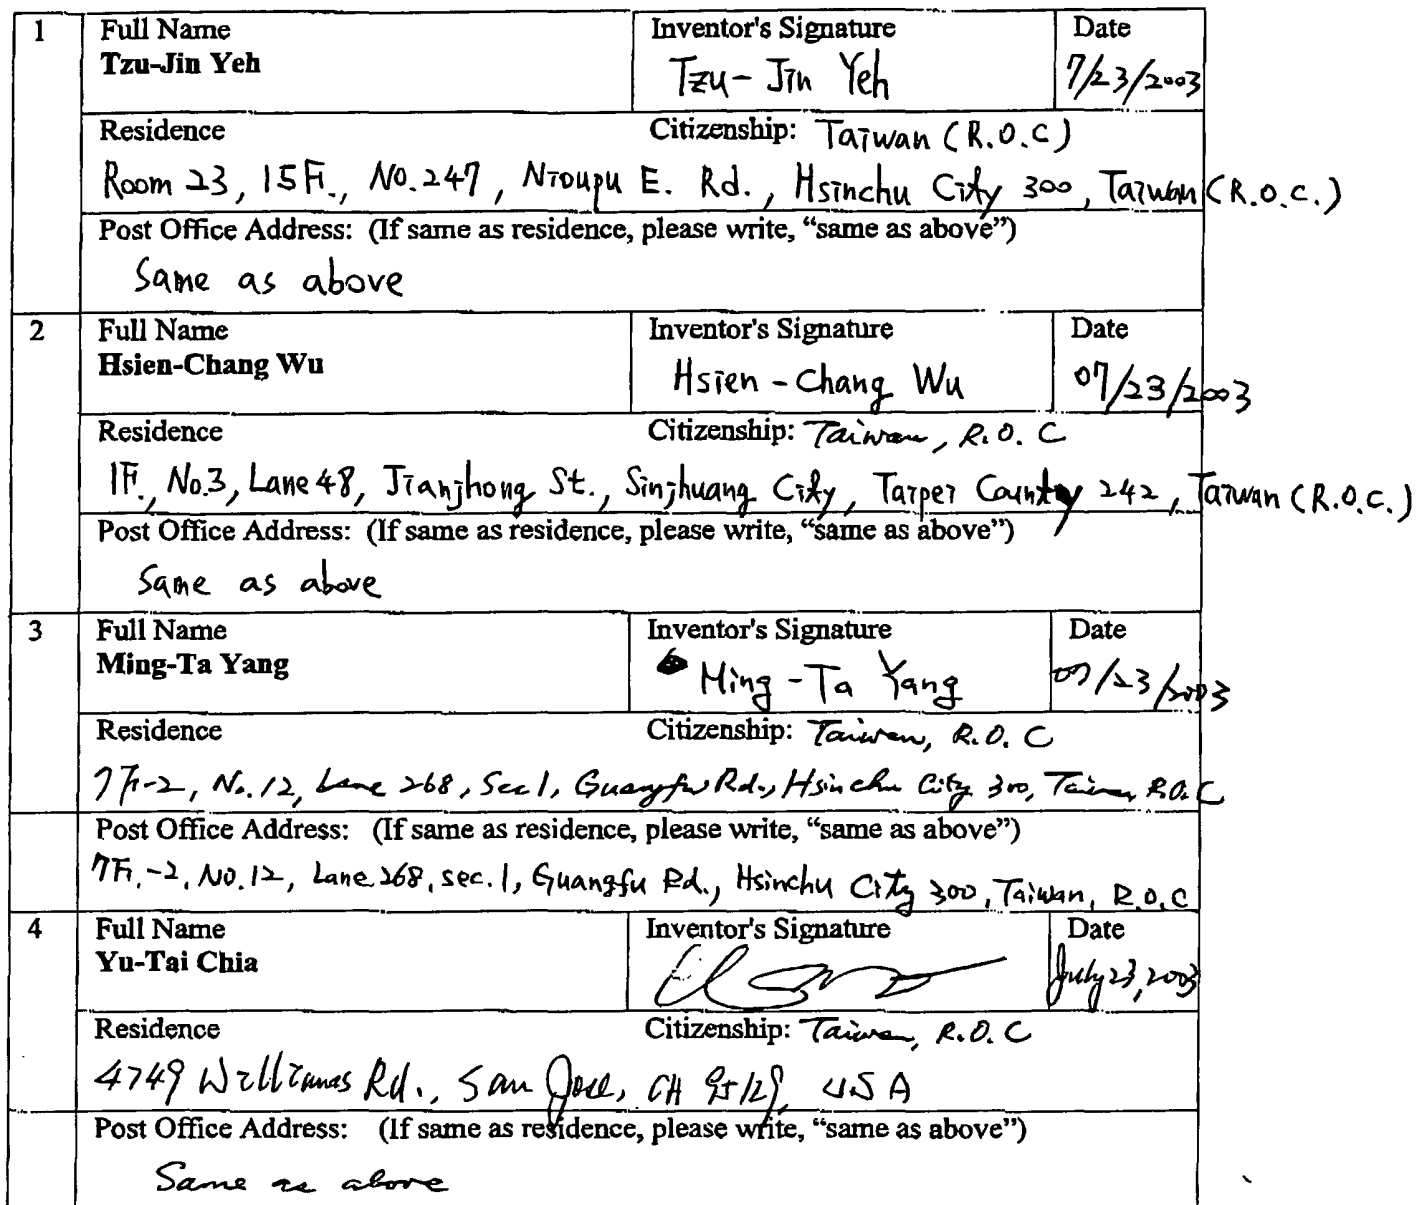 1 Full Name Inventor's Signature Date
Tzu-Jin Yeh Tzu-Jin Yeh 7/23/2003
Residence Citizenship: Taiwan (R.O.C)
Room 23, 15Fl., No.247, Nioupu E. Rd., Hsinchu City 300, Taiwan (R.O.C.)
Post Office Address: (If same as residence, please write, “same as above”)
Same as above
2 Full Name Inventor's Signature Date
Hsien-Chang Wu Hsien-Chang Wu 07/23/2003
Residence Citizenship: Taiwan, R.O.C
1F., No.3, Lane 48, Jianjhong St., Sinjhuang City, Taipei County 242, Taiwan (R.O.C.)
Post Office Address: (If same as residence, please write, “same as above”)
Same as above
3 Full Name Inventor's Signature Date
Ming-Ta Yang Ming-Ta Yang 07/23/2003
Residence Citizenship: Taiwan, R.O.C
7Fl-2, No.12, Lane 268, Sec1, Guangfu Rd., Hsinchu City 300, Taiwan, R.O.C
Post Office Address: (If same as residence, please write, “same as above”)
7Fl.-2, No.12, Lane 268, sec.1, Guangfu Rd., Hsinchu City 300, Taiwan, R.O.C
4 Full Name Inventor's Signature Date
Yu-Tai Chia July 23, 2003
Residence Citizenship: Taiwan, R.O.C
4749 Williams Rd., San Jose, CA 95129, USA
Post Office Address: (If same as residence, please write, “same as above”)
Same as above